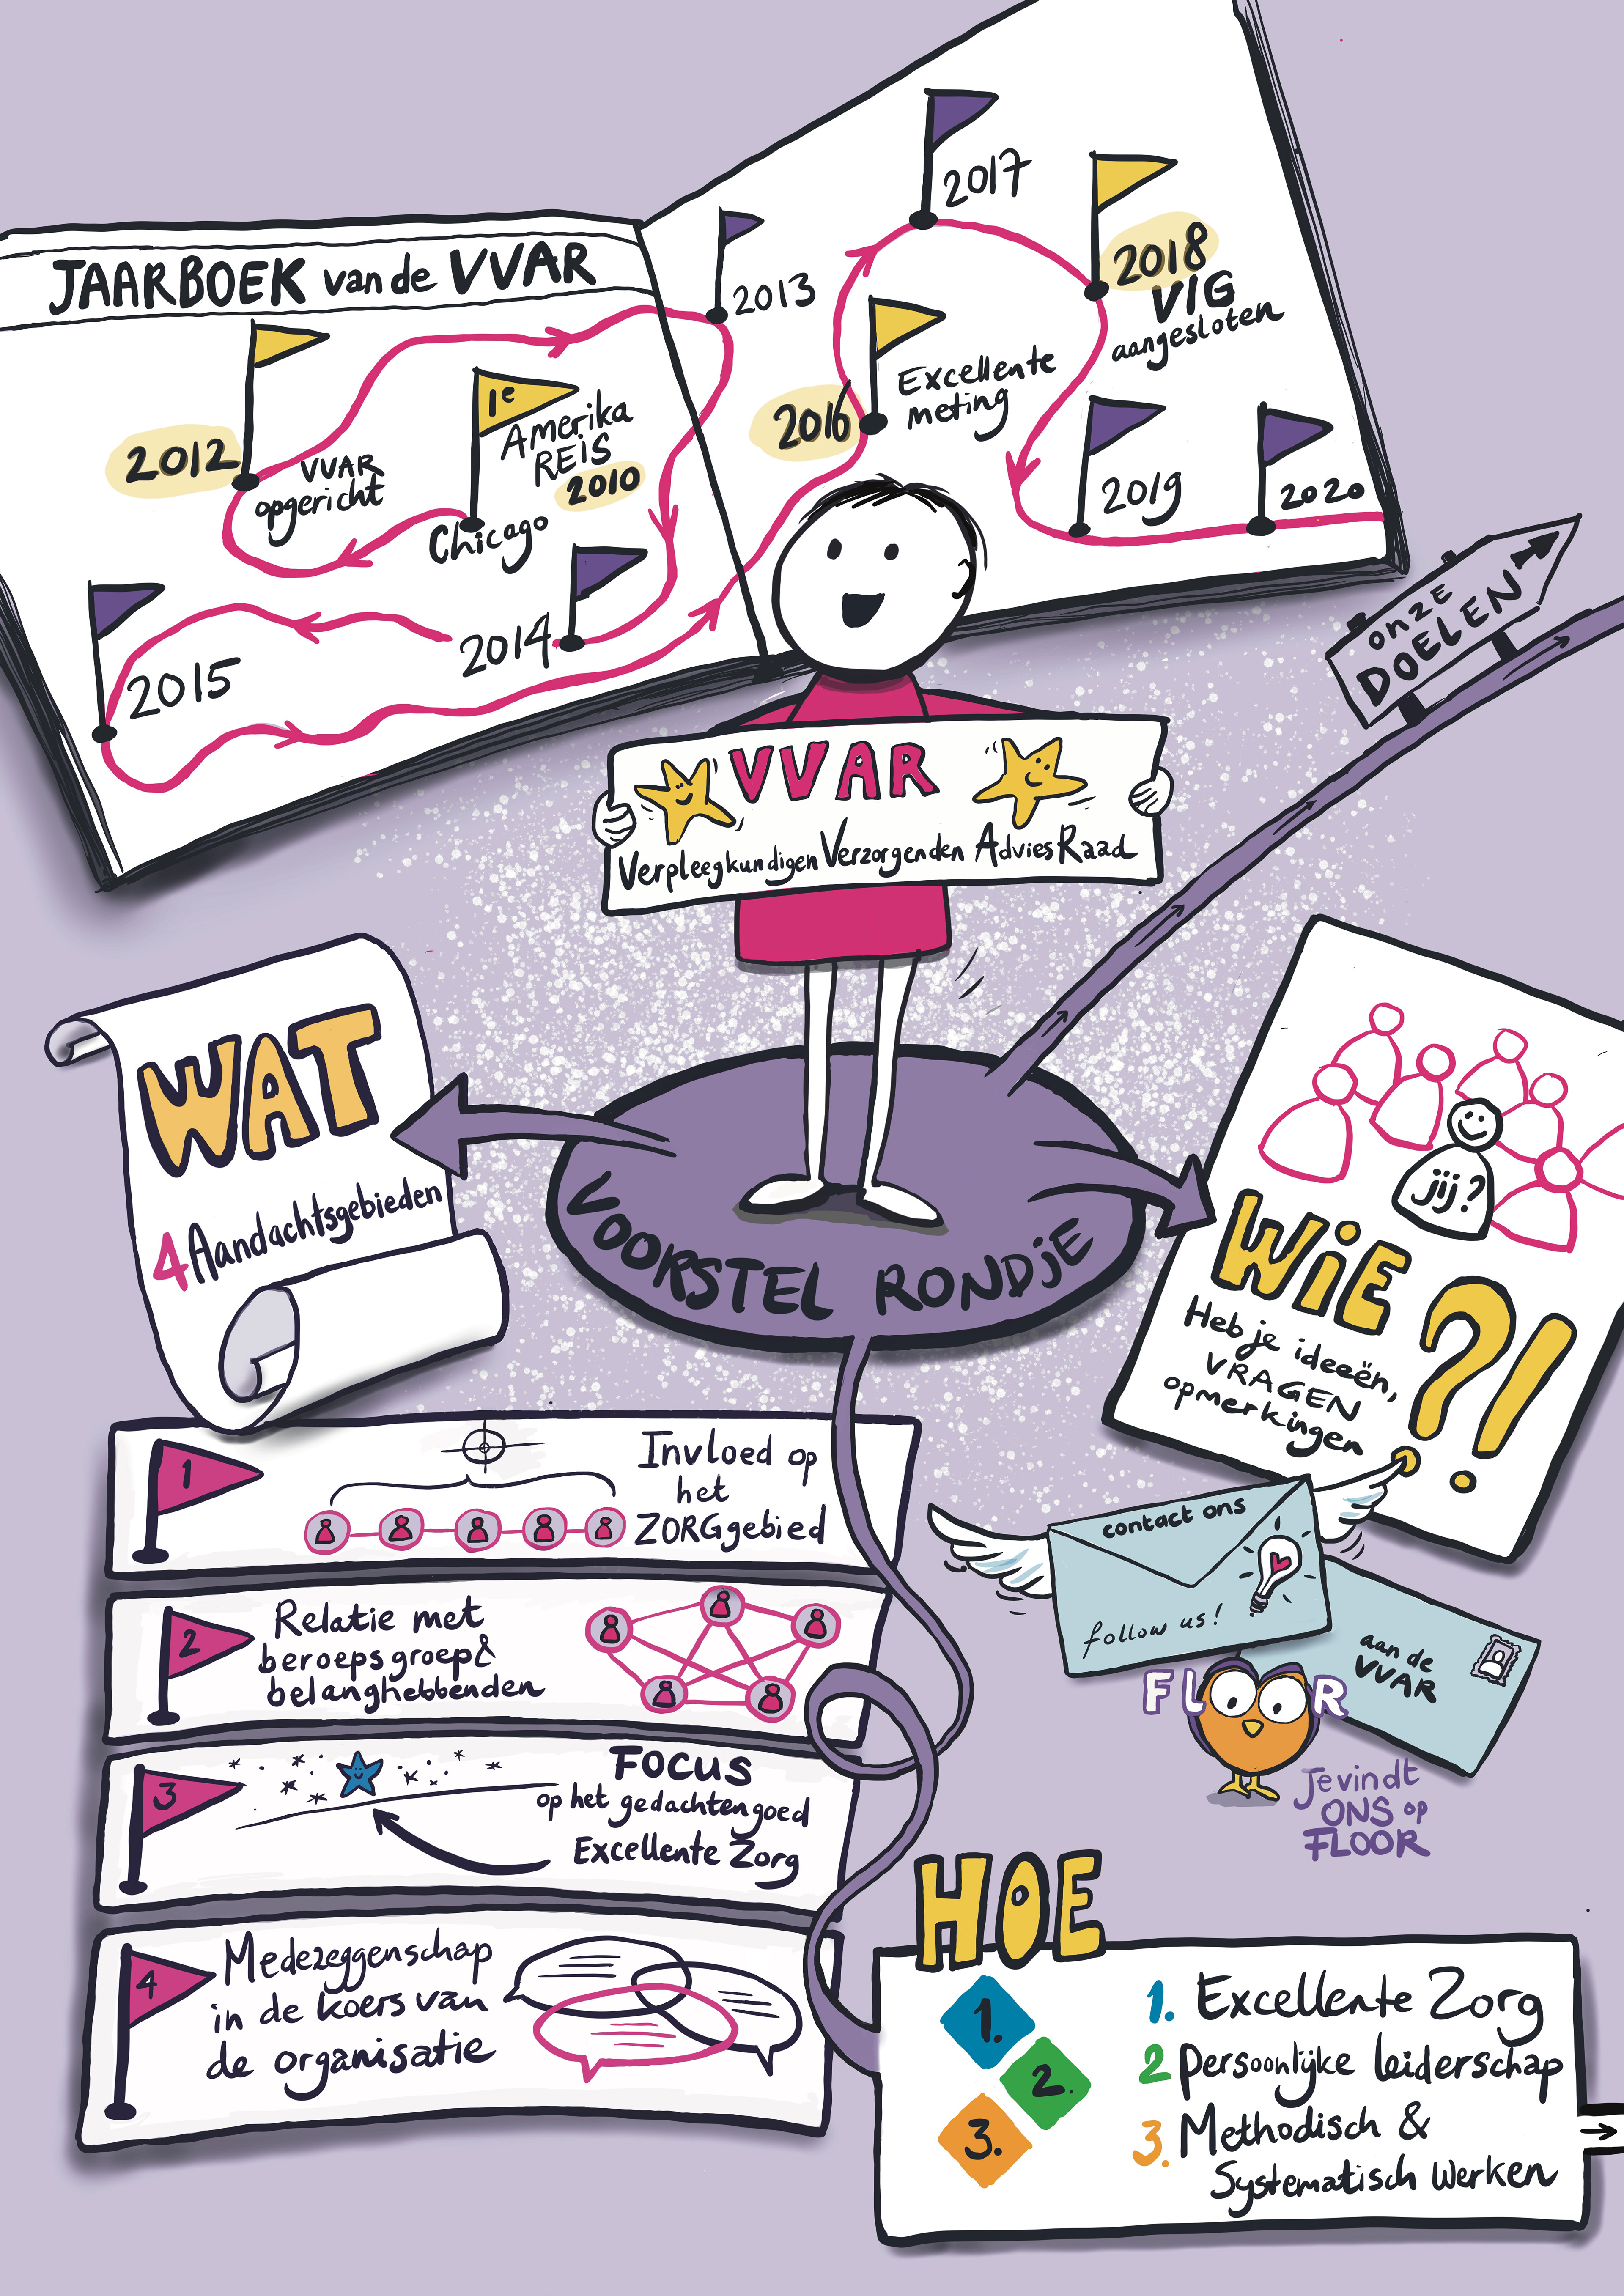 JAARBOEK van de VVAR
2012
VVAR
opgericht
1e
Amerika
REIS
2010
Chicago
2013
2014
2015
2016
Excellente
meting
2017
2018
VIG
aangesloten
2019
2020
onze
DOELEN
VVAR
Verpleegkundigen Verzorgenden AdviesRaad
VOORSTEL RONDJE
WAT
4 Aandachtsgebieden
jij?
WIE?!
Heb je ideeën,
VRAGEN
opmerkingen
contact ons
follow us!
aan de
VVAR
FLOOR
Je vindt
ONS op
FLOOR
1
Invloed op
het
ZORGgebied
2
Relatie met
beroepsgroep &
belanghebbenden
3
FOCUS
op het gedachtengoed
Excellente Zorg
4
Medezeggenschap
in de koers van
de organisatie
HOE
1.
2.
3.
1. Excellente Zorg
2 persoonlijke leiderschap
3. Methodisch &
Systematisch werken